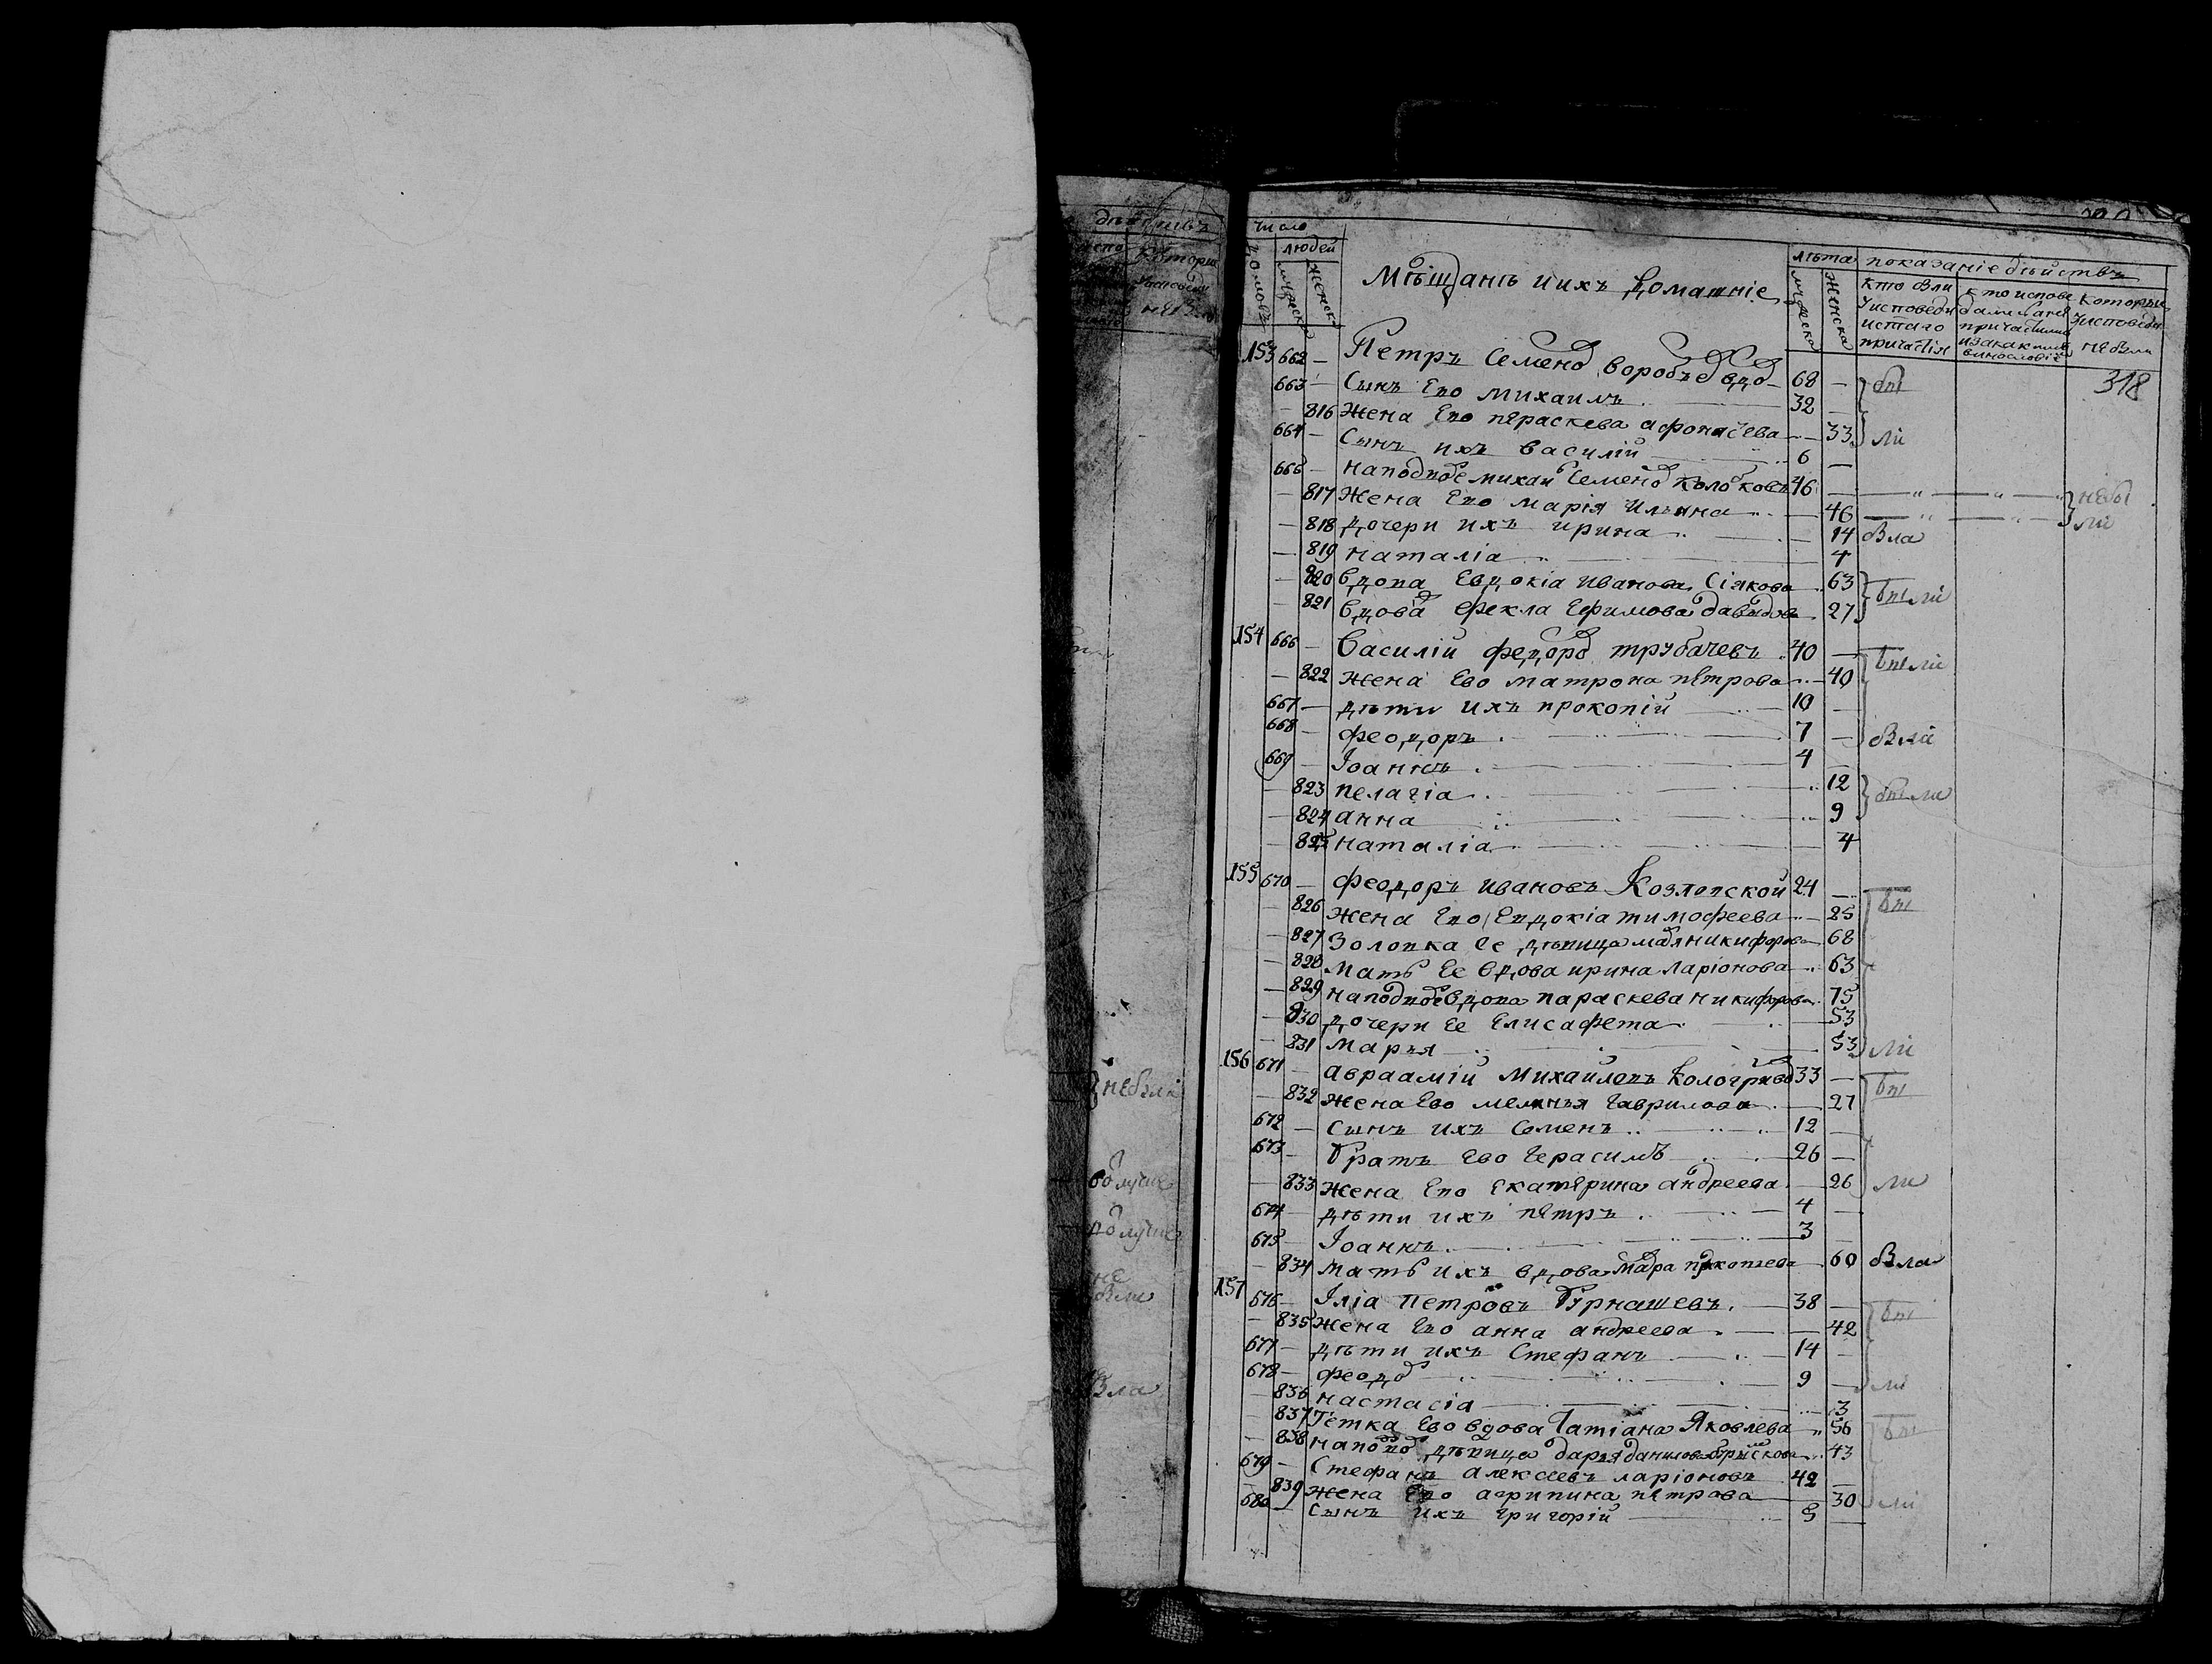 число
людей
домовъ
мужеска
женска
Мѣщанѣ и ихъ домашніе
лѣта
мужеска
женска
показаніе дѣйствъ
кто бли у исповеди и стаго причастія
кто испове
которые у исповеди не бли
318
153 662 — Петръ Семено Воробьео вдо 68 — бы
663 — Сынъ Его михаилъ 32 —
— 816 Жена Его параскева афонасева — 33 ли
664 — Сынъ ихъ василій 6 —
665 — наподподе михаи Семено колоковъ 46 — небы
— 817 Жена Его марія Ильина — 46 ли
— 818 дочери ихъ ирина — 14 бвла
— 819 наталіа 4
— 820 вдова Евдокіа иванова Сіякова 63 бы
— 821 вдова фекла Ефимова давыдова 27 ли
154 666 — Василій федоро трубачевъ 40 — бы ли
— 822 жена Ево матрона петрова — 40
667 — дѣти ихъ прокопій 10 —
668 — феодоръ 7 — бвли
669 — Іоаннъ 4
— 823 пелагіа 12 бы ли
— 824 анна 9
— 825 наталіа 4
155 670 — феодоръ ивановъ Козловской 24 — бы
— 826 жена Его Евдокіа тимофеева — 25
— 827 Золовка ее дѣвица маря никифорова 68
— 828 мать Ее вдова ирина ларіонова 63
— 829 наподподе вдова параскева никифорова 75
— 830 дочери Ее Елисафета 53
— 831 марья 53 ли
156 671 — авраамій михайловъ Кологриво 33 — бы
— 832 жена Ево меланья гаврилова 27
672 — сынъ ихъ Семенъ 12 —
673 — братъ Ево герасимъ 26 —
— 833 жена Его Екатерина андреева — 26 ли
674 — дѣти ихъ петръ 4 —
675 — Іоаннъ 3
— 834 мать ихъ вдова мара прокопьева 60 бвла
157 676 — Іліа Петровъ Бурнашевъ 38 — бы
— 835 жена Его анна андреева — 42
677 — дѣти ихъ Стефанъ 14 —
678 — феодо 9 — ли
— 836 настасіа 3
— 837 Тетка Ево вдова Татіана Яковлева 56 бы
— 838 напопо дѣвица дарья данилова 43
679 — Стефанъ алексеевъ ларіоновъ 42 —
— 839 жена Его агрипина петрова 30 ли
680 — сынъ ихъ григорій 5 —
небли
вла